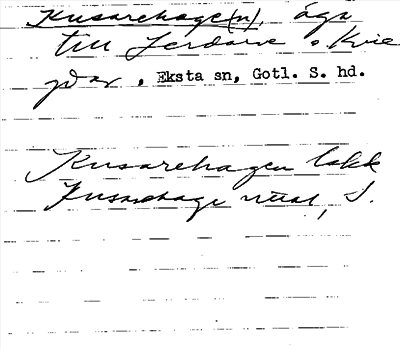 Kusarehage(n), ägor
till Jerdarve o. Kvie
gdar, Eksta sn, Gotl. S. hd.
Kusarehagen Lakk
Kusarehage